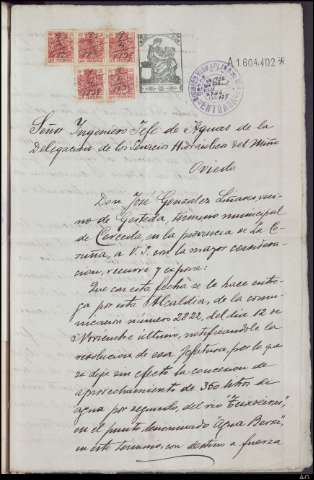 A1.604.402*
Señor Ingeniero Jefe de Aguas de la
Delegación de los Servicios Hidráulicos del Miño
Oviedo
Don José González Liñares, veci-
no de Gesteda, término municipal
de Cerceda, en la provincia de la Co-
ruña, a V.S. con la mayor considera-
ción, recurre y expone:
Que con esta fecha se le hace entre-
ga por esta Alcaldía, de la comu-
nicación número 2222, del día 12 de
Noviembre último, notificándole la
resolución de esa Jefatura, por la que
se deja sin efecto la concesión de
aprovechamiento de 360 litros de
agua por segundo, del río
en el punto denominado
en este término, con destino a fuerza